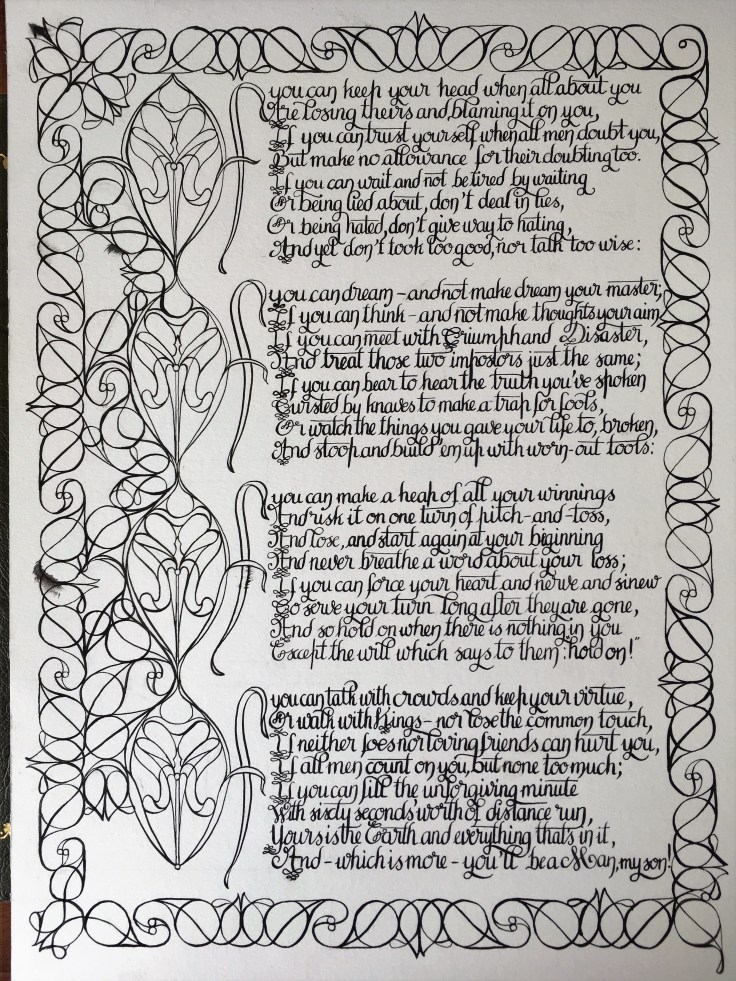 If you can keep your head when all about you
Are losing theirs and blaming it on you,
If you can trust yourself when all men doubt you,
But make no allowance for their doubting too.
If you can wait and not be tired by waiting
Or being lied about, don't deal in lies,
Or being hated, don't give way to hating,
And yet don't look too good, nor talk too wise:
If you can dream - and not make dream your master;
If you can think - and not make thoughts your aim,
If you can meet with Triumph and Disaster,
And treat those two impostors just the same;
If you can bear to hear the truth you've spoken
Twisted by knaves to make a trap for fools,
Or watch the things you gave your life to, broken,
And stoop and build 'em up with worn-out tools:
If you can make a heap of all your winnings
And risk it on one turn of pitch-and-toss,
And lose, and start again at your biginning
And never breathe a word about your loss;
If you can force your heart and nerve and sinew
To serve your turn long after they are gone,
And so hold on when there is nothing in you
Except the will which says to them: hold on!"
If you can talk with crowds and keep your virtue,
Or walk with Kings - nor lose the common touch,
If neither foes nor loving friends can hurt you,
If all men count on you, but none too much;
If you can fill the unforgiving minute
With sixty seconds' worth of distance run,
Yours is the Earth and everything that's in it,
And - which is more - you'll be a Man, my son!